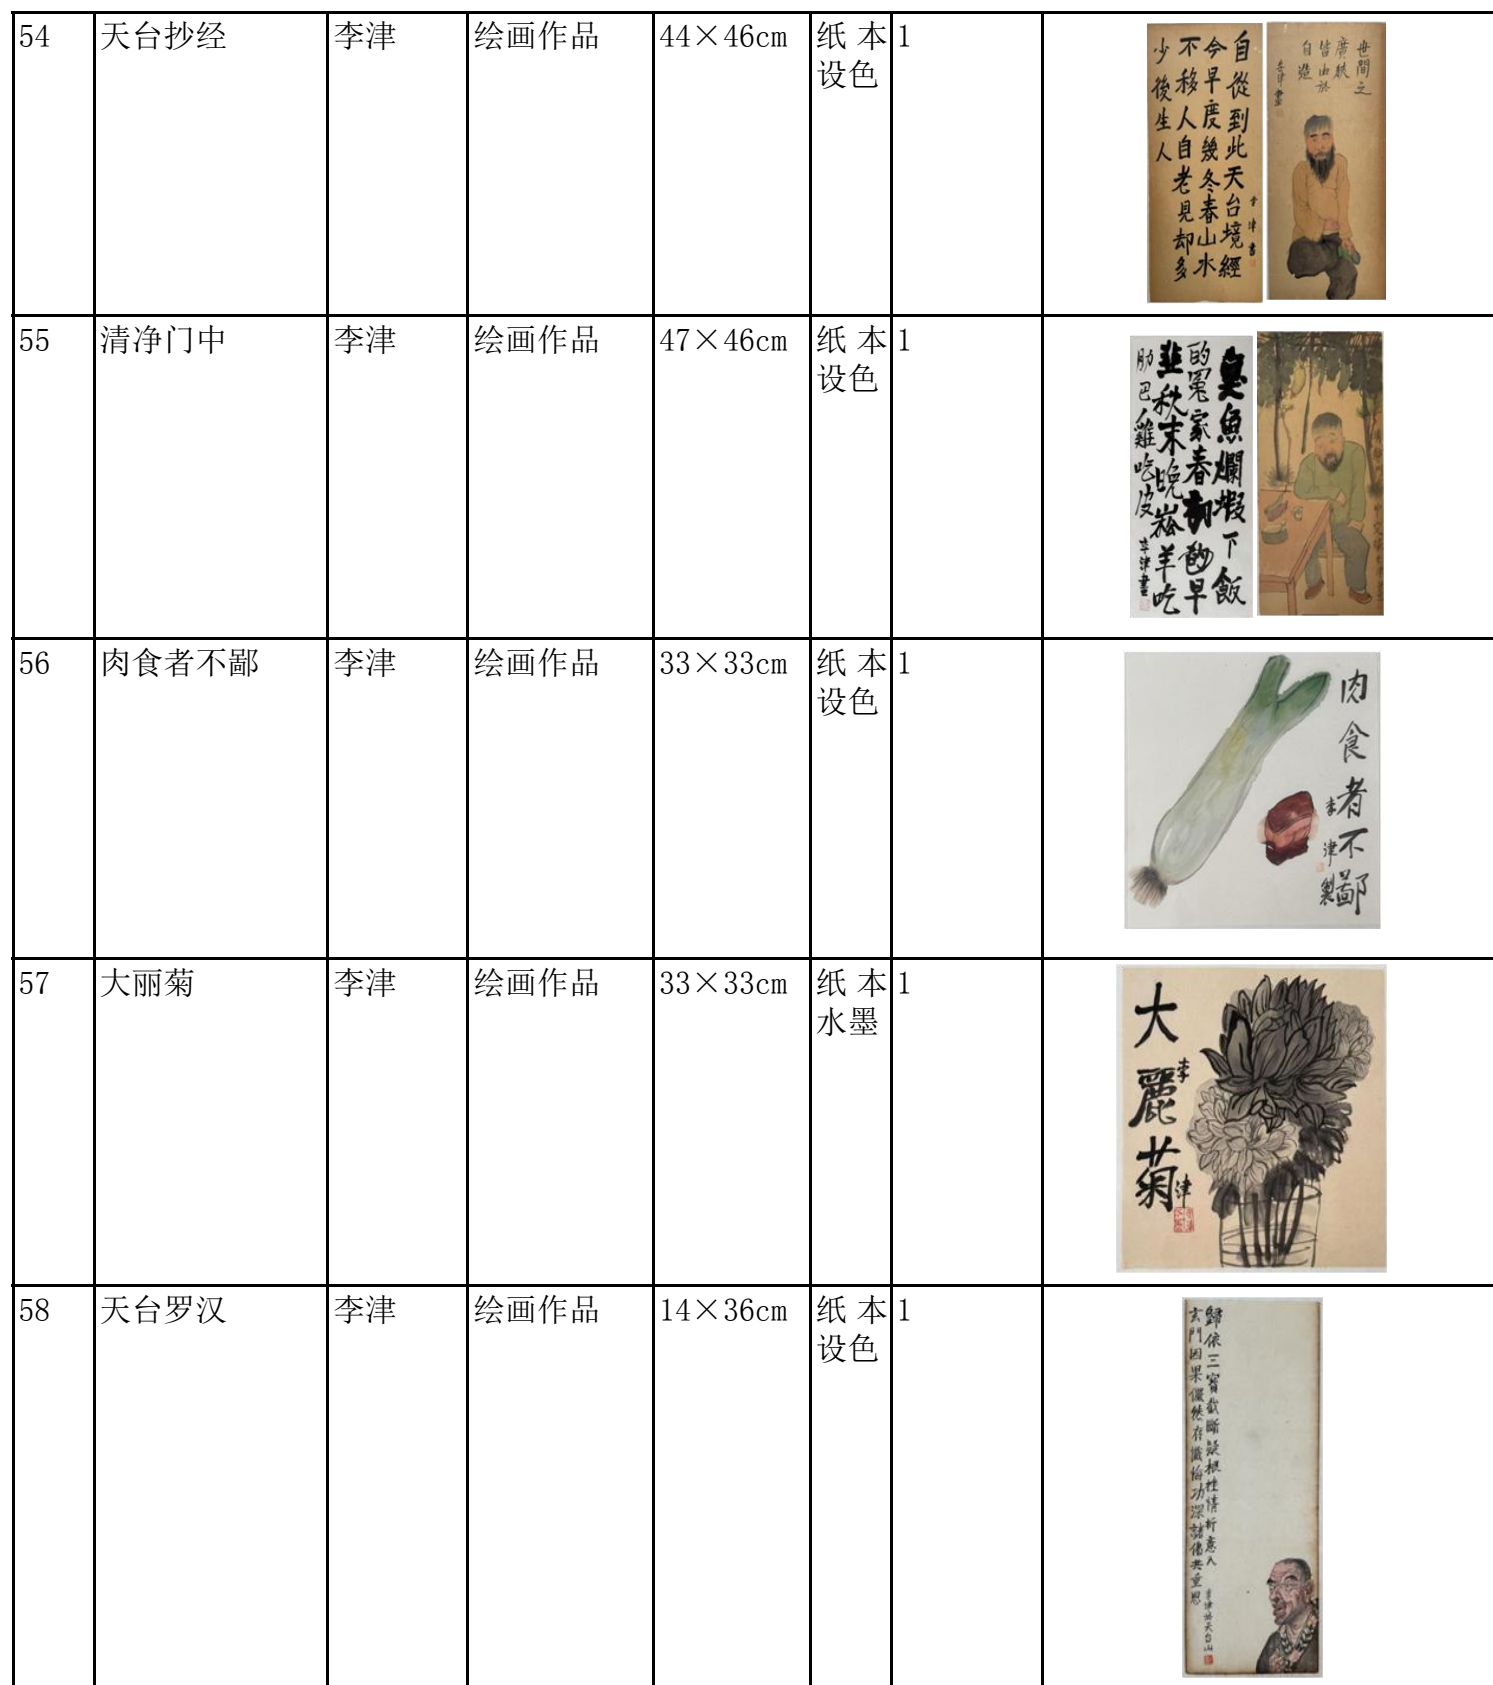 54 天台抄经 李津 绘画作品 44×46cm 纸本 1
设色
自從到此天台境經
今早度幾冬春山水
不移人自老見却多
少後生人
李津書
世間之
廣狹
皆由於
自造
李津畫
55 清净门中 李津 绘画作品 47×46cm 纸本 1
设色
臭魚爛蝦下飯
的冤家春初的早
韭秋末晚菘羊吃
肋巴雞吃皮
李津書
56 肉食者不鄙 李津 绘画作品 33×33cm 纸本 1
设色
肉食者不鄙
李津製
57 大丽菊 李津 绘画作品 33×33cm 纸本 1
水墨
大麗菊
李津
58 天台罗汉 李津 绘画作品 14×36cm 纸本 1
设色
歸依三寶截斷疑根挂情折意入
玄門因果儼然存懺悔功深諸佛共重恩
李津於天台山